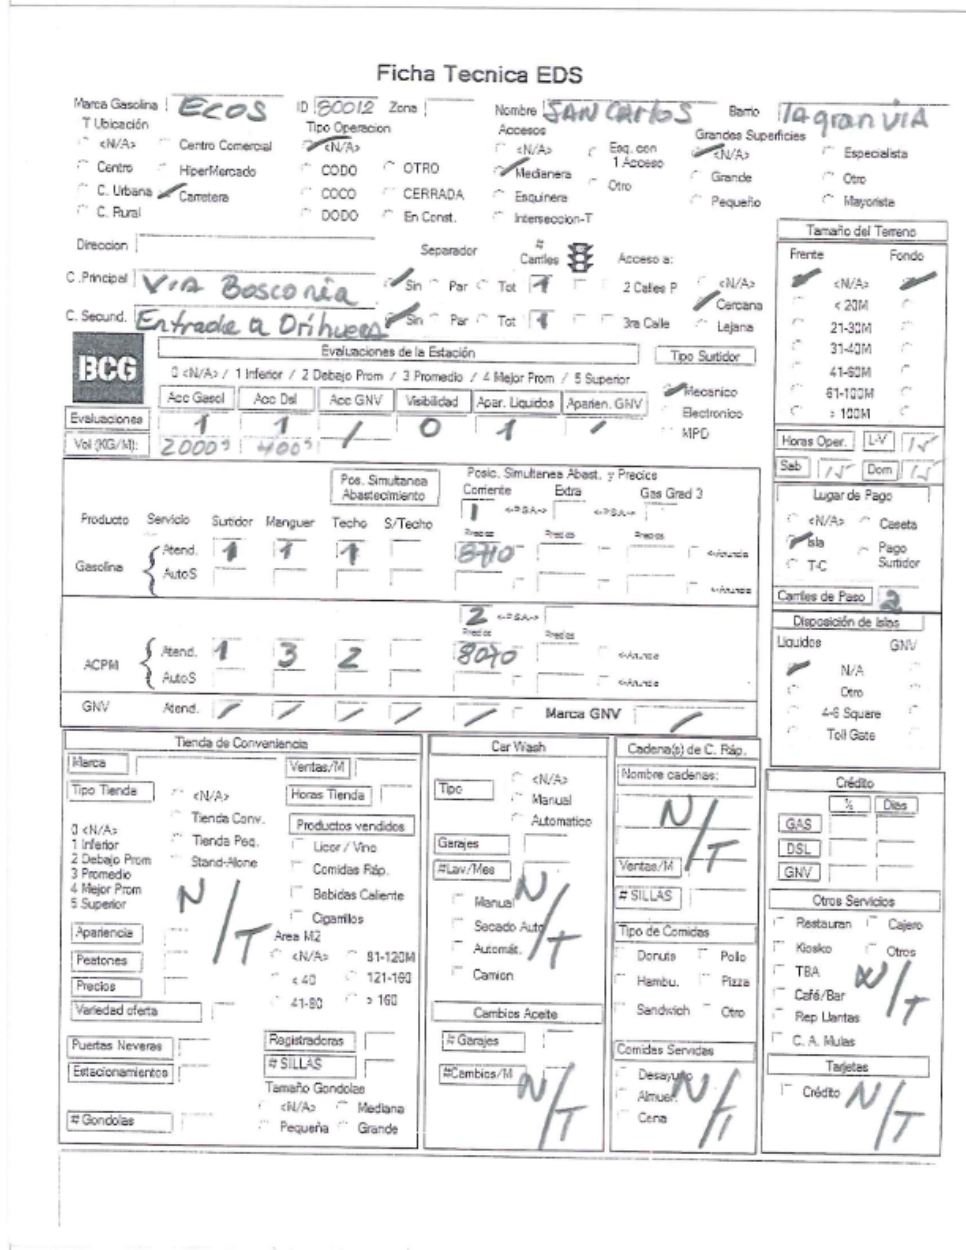 Ficha Tecnica EDS
Marca Gasolina ECOS ID 80012 Zona Nombre SAN CARLOS Barrio la gran VIA
T Ubicación Tipo Operacion Accesos Grandes Superficies
<N/A> Centro Comercial <N/A> <N/A> Esq. con 1 Acceso <N/A> Especialista
Centro HiperMercado CODO OTRO Medianera Otro Grande Otro
C. Urbana Carretera COCO CERRADA Esquinera Pequeño Mayorista
C. Rural DODO En Const. Interseccion-T
Direccion Separador # Carriles Acceso a:
C .Principal VIA Bosconia Sin Par Tot 1 2 Calles P <N/A>
Cercana
C. Secund. Entrada a Orihueca Sin Par Tot 1 3ra Calle Lejana
Tamaño del Terreno
Frente Fondo
<N/A>
< 20M
21-30M
31-40M
41-60M
61-100M
> 100M
BCG
Evaluaciones de la Estación Tipo Surtidor
0 <N/A> / 1 Inferior / 2 Debajo Prom / 3 Promedio / 4 Mejor Prom / 5 Superior
Acc Gasol Acc Dsl Acc GNV Visibilidad Apar. Liquidos Aparien. GNV
Mecanico
Electronico
MPD
Evaluaciones 1 1 / 0 1 /
Vol (KG/M):
Horas Oper. L-V 15
Sab 15 Dom 15
Pos. Simultanea Abastecimiento
Posic. Simultanea Abast. y Precios
Corriente Extra Gas Grad 3
1 <-PSA-> <-PSA->
Producto Servicio Surtidor Manguer Techo S/Techo Precios Precios Precios
Gasolina Atend. 1 1 1 8710 <-Anuncia
AutoS <-Anuncia
Lugar de Pago
<N/A> Caseta
Isla Pago Surtidor
T-C
Carriles de Paso 2
2 <-PSA->
Precios Precios
ACPM Atend. 1 3 2 8070 <-Anuncia
AutoS <-Anuncia
GNV Atend. / / / / / Marca GNV /
Disposición de Islas
Liquidos GNV
N/A
Otro
4-6 Square
Toll Gate
Tienda de Conveniencia
Marca Ventas/M
Tipo Tienda <N/A> Horas Tienda
Tienda Conv.
0 <N/A> Productos vendidos
1 Inferior Tienda Peq. Licor / Vino
2 Debajo Prom Stand-Alone Comidas Ráp.
3 Promedio
4 Mejor Prom Bebidas Caliente
5 Superior Cigarrillos
N/T
Apariencia Area M2
Peatones <N/A> 81-120M
Precios < 40 121-160
Variedad oferta 41-80 > 160
Puertas Neveras Registradoras
Estacionamientos # SILLAS
Tamaño Gondolas
<N/A> Mediana
# Gondolas Pequeña Grande
Car Wash
Tipo <N/A>
Manual
Automatico
Garajes
#Lav/Mes
Manual
Secado Auto
Automát.
Camion
N/T
Cambios Aceite
# Garajes
#Cambios/M
N/T
Cadena(s) de C. Ráp.
Nombre cadenas:
N/T
Ventas/M
# SILLAS
Tipo de Comidas
Donuts Pollo
Hambu. Pizza
Sandwich Otro
Comidas Servidas
Desayuno
Almuer.
Cena
N/T
Crédito
% Dias
GAS
DSL
GNV
Otros Servicios
Restauran Cajero
Kiosko Otros
TBA
Café/Bar
Rep Llantas
C. A. Mulas
N/T
Tarjetas
Crédito N/T